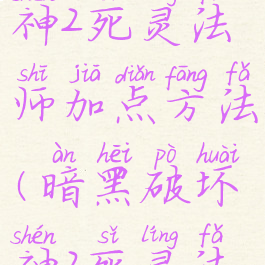 神2死灵法
shī jiā diǎn fāng fǎ
师加点方法
àn hēi pò huài
(暗黑破坏
shén sǐ líng fǎ
神2死灵法